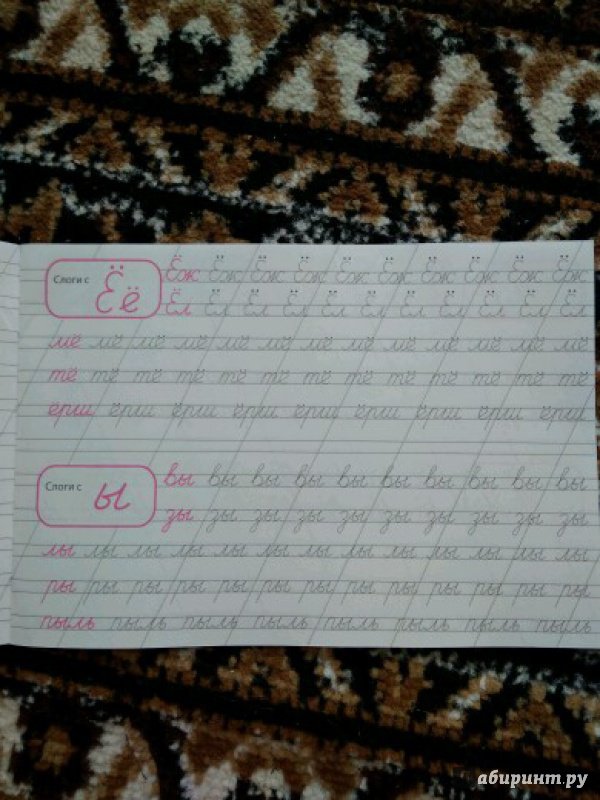 Слоги с Ёё
Ёж Ёж Ёж Ёж Ёж Ёж Ёж Ёж Ёж Ёж
Ёл Ёл Ёл Ёл Ёл Ёл Ёл Ёл Ёл Ёл Ёл
мё мё мё мё мё мё мё мё мё мё мё мё мё
тё тё тё тё тё тё тё тё тё тё тё тё тё
ёрш ёрш ёрш ёрш ёрш ёрш ёрш ёрш ёрш
Слоги с ы
вы вы вы вы вы вы вы вы вы вы
зы зы зы зы зы зы зы зы зы зы
лы лы лы лы лы лы лы лы лы лы лы лы лы
ры ры ры ры ры ры ры ры ры ры ры ры ры
пыль пыль пыль пыль пыль пыль пыль пыль
абиринт.ру